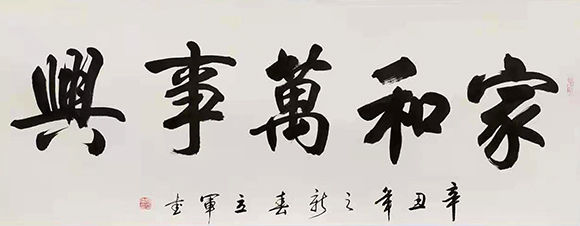 家和萬事興
辛丑年之新春立軍書